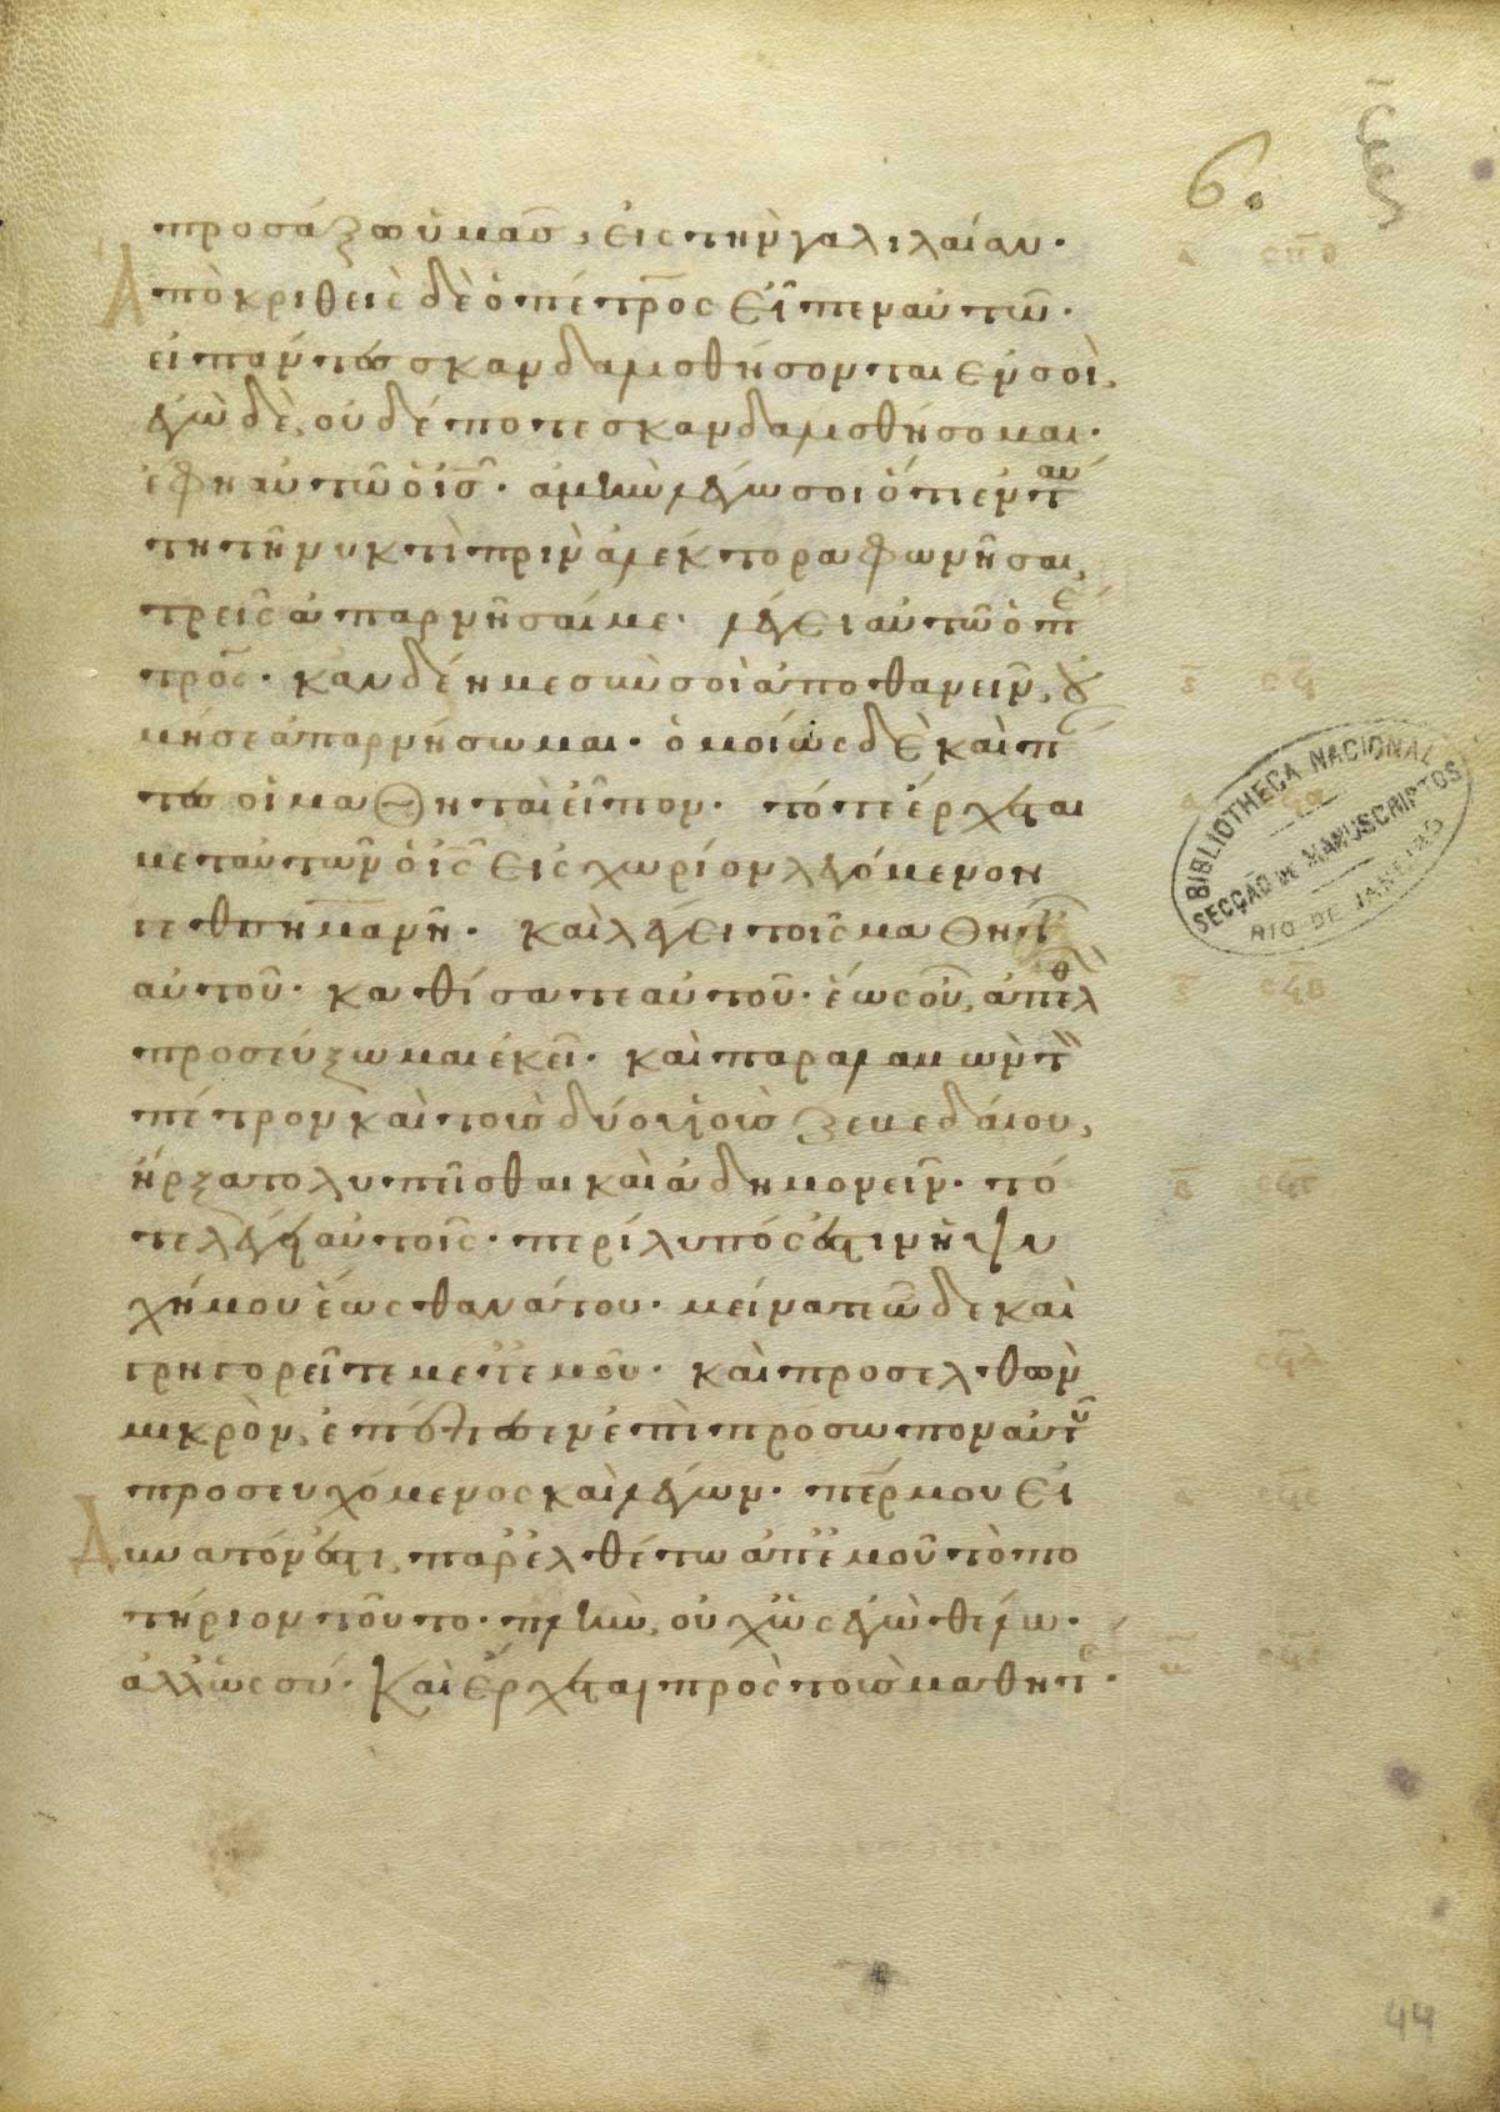 6.
ξ
προσάξω ὑμᾶσ, εἰς τὴν γαλιλαίαν·
Ἀποκριθεὶς δὲ ὁ πέτρος εἶπεν αὐτῶ·
εἰ πάντες σκανδαλισθήσονται ἐν σοὶ,
ἐγὼ δὲ, οὐδέποτε σκανδαλισθήσομαι·
ἔφη αὐτῶ ὁ ἰσ̅· ἀμὴν λέγω σοι ὅτι ἐν ταύ
τη τῆ νυκτὶ πρὶν ἀλέκτορα φωνῆσαι,
τρεῖς ἀπαρνήσαί με· λέγει αὐτῶ ὁ πέ
τρος· κἂν δέη με σὺν σοὶ ἀποθανεῖν, οὐ
μή σε ἀπαρνήσωμαι· ὁμοίως δὲ καὶ πάν
τες οἱ μαθηταὶ εἶπον· τότε ἔρχεται
μετ αὐτῶν ὁ ἰς̅ εἰς χωρίον λεγόμενον
γεθσημανῆ· καὶ λέγει τοῖς μαθητ
αὐτοῦ· καθίσατε αὐτοῦ· ἕως οὗ, ἀπελθ
προσεύξωμαι ἐκεῖ· καὶ παραλαβὼν τ
πέτρον καὶ τοὺσ δύο υἱοὺσ ζεβεδαίου,
ἤρξατο λυπεῖσθαι καὶ ἀδημονεῖν· τό
τε λέγει αὐτοῖς· περίλυπός ἐστιν ἡ ψυ
χή μου ἕως θανάτου· μείνατε ὧδε καὶ
γρηγορεῖτε μετ ἐμοῦ· καὶ προσελθὼν
μικρὸν, ἔπεσεν ἐπὶ πρόσωπον αὐτοῦ
προσευχόμενος καὶ λέγων· πέρ μου εἰ
Δυνατόν ἐστι, παρελθέτω ἀπ ἐμοῦ τὸ πο
τήριον τοῦτο· πλὴν, οὐχ ὡς ἐγὼ θέλω·
ἀλλ ὡς σύ· Καὶ ἔρχεται πρὸς τοὺσ μαθητ·
BIBLIOTHECA NACIONAL
SECÇÃO DE MANUSCRIPTOS
RIO DE JANEIRO
44